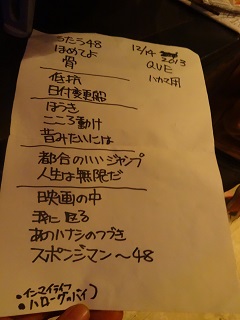 ろたう48
12/14 2013
ほめてよ
QUE
骨
ハカマ用
低抗
日付変更船
ほうき
こころ動け
昔みたいには
都合のいいジャンプ
人生は無限だ
映画の中
あのハナシのつづき
スポンジマン〜48
インマイライフ
ハローグッバイ